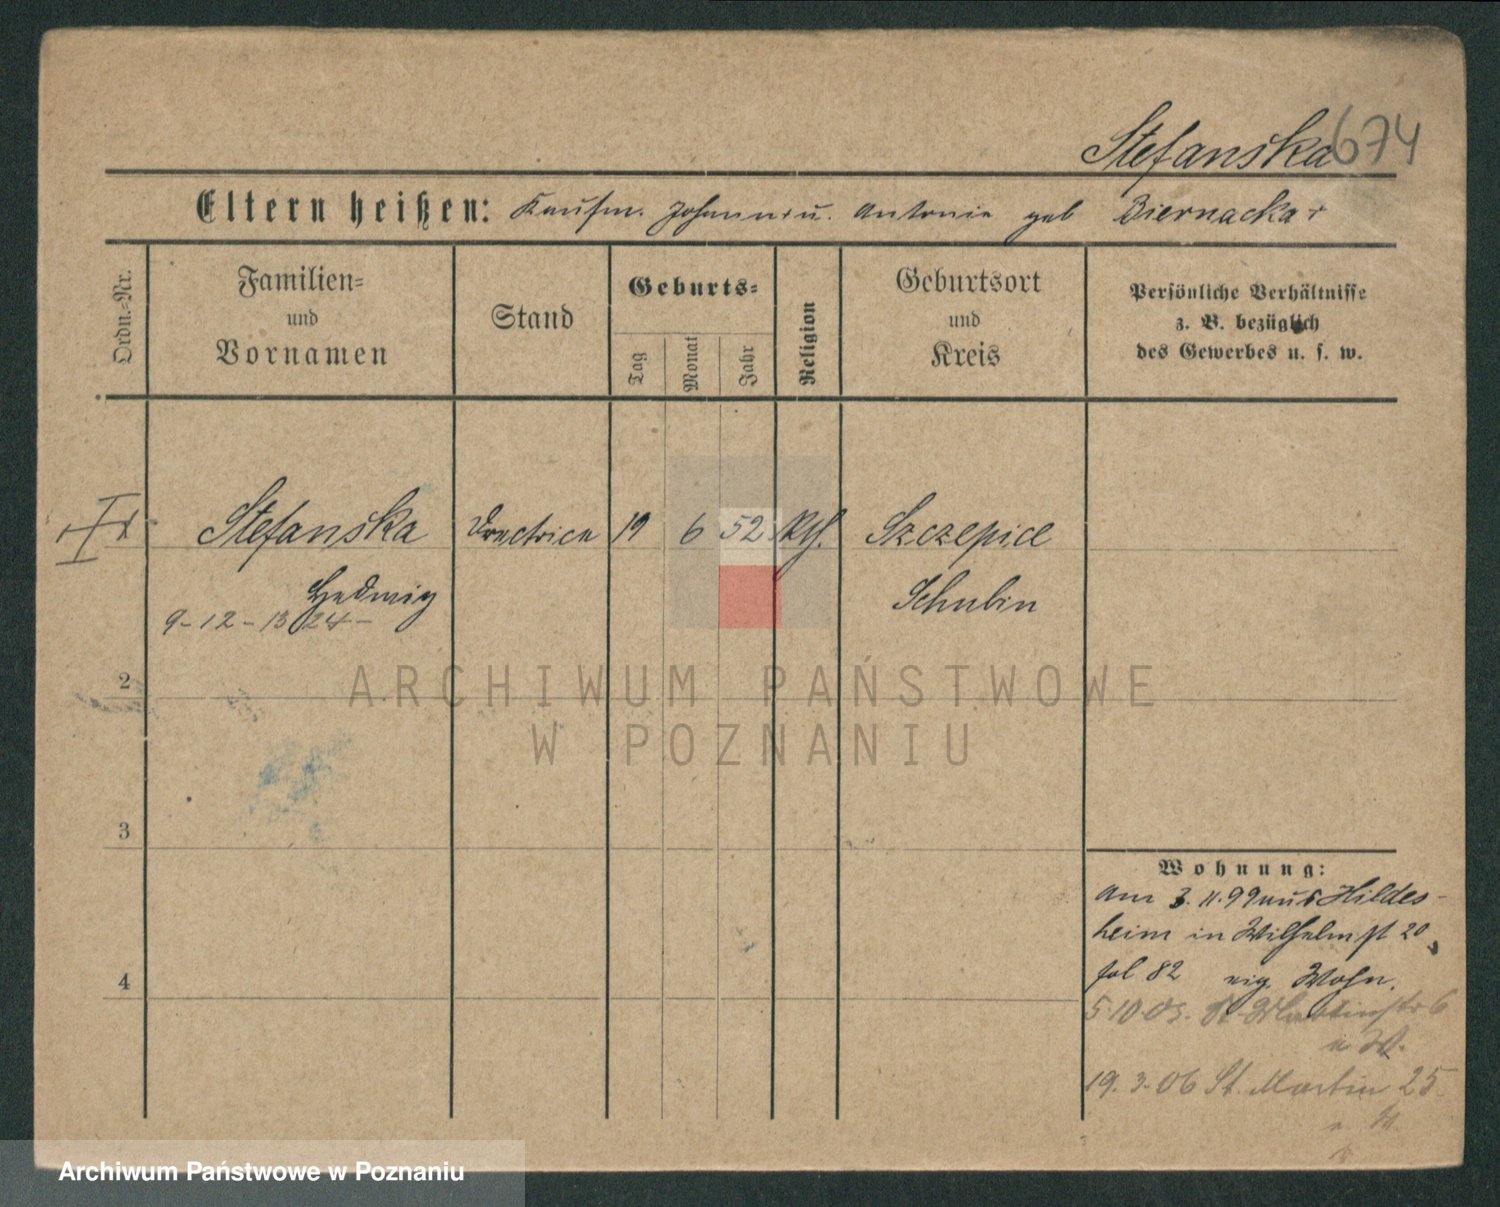 Stefanska 674
Eltern heißen: Kaufm. Johann + u. Antonie geb Biernacka +
Ordn.-Nr.
Familien-
und
Vornamen
Stand
Geburts-
Tag
Monat
Jahr
Religion
Geburtsort
und
Kreis
Persönliche Verhältnisse
z. B. bezüglich
des Gewerbes u. s. w.
Stefanska Directrice 19 6 52 Kth. Szczepice
Hedwig Schubin
9-12-13 24-
2
3
4
Wohnung:
am 3. 11. 99 aus Hildes-
heim in Wilhelmst 20
fol 82 eig. Wohn.
5.10.05. St. Martinstr 6
e. W.
19. 3. 06 St. Martin 25
ARCHIWUM PAŃSTWOWE
W POZNANIU
Archiwum Państwowe w Poznaniu